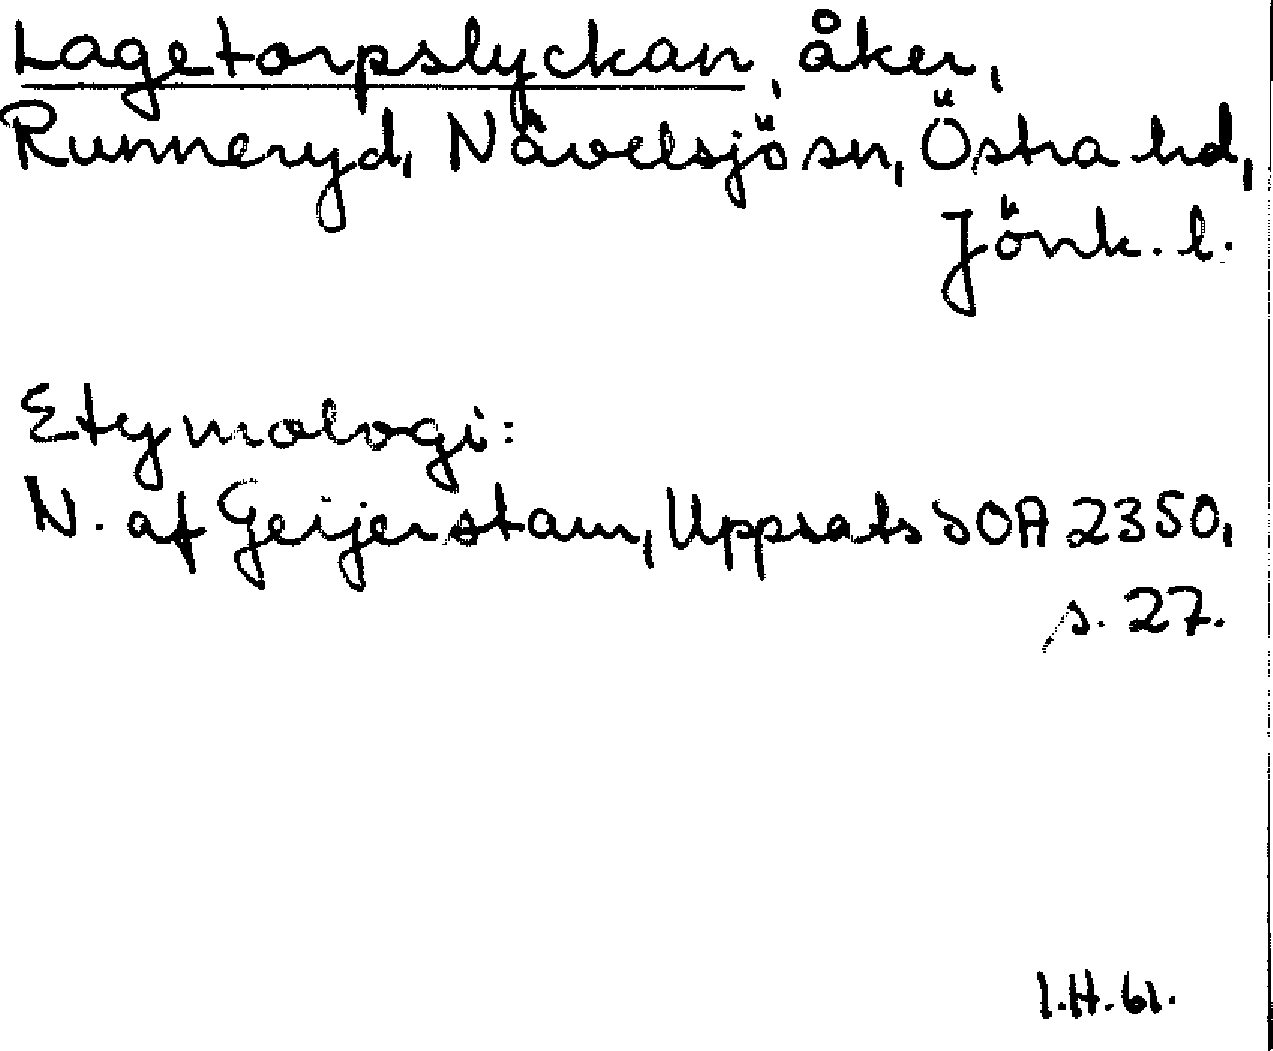 Lagetorpslyckan, åker,
Runneryd, Nävelsjö sn, Östra hd,
Jönk. l.
Etymologi:
N. af Geijerstam, Uppsats SOA 2350,
s. 27.
I.H.61.